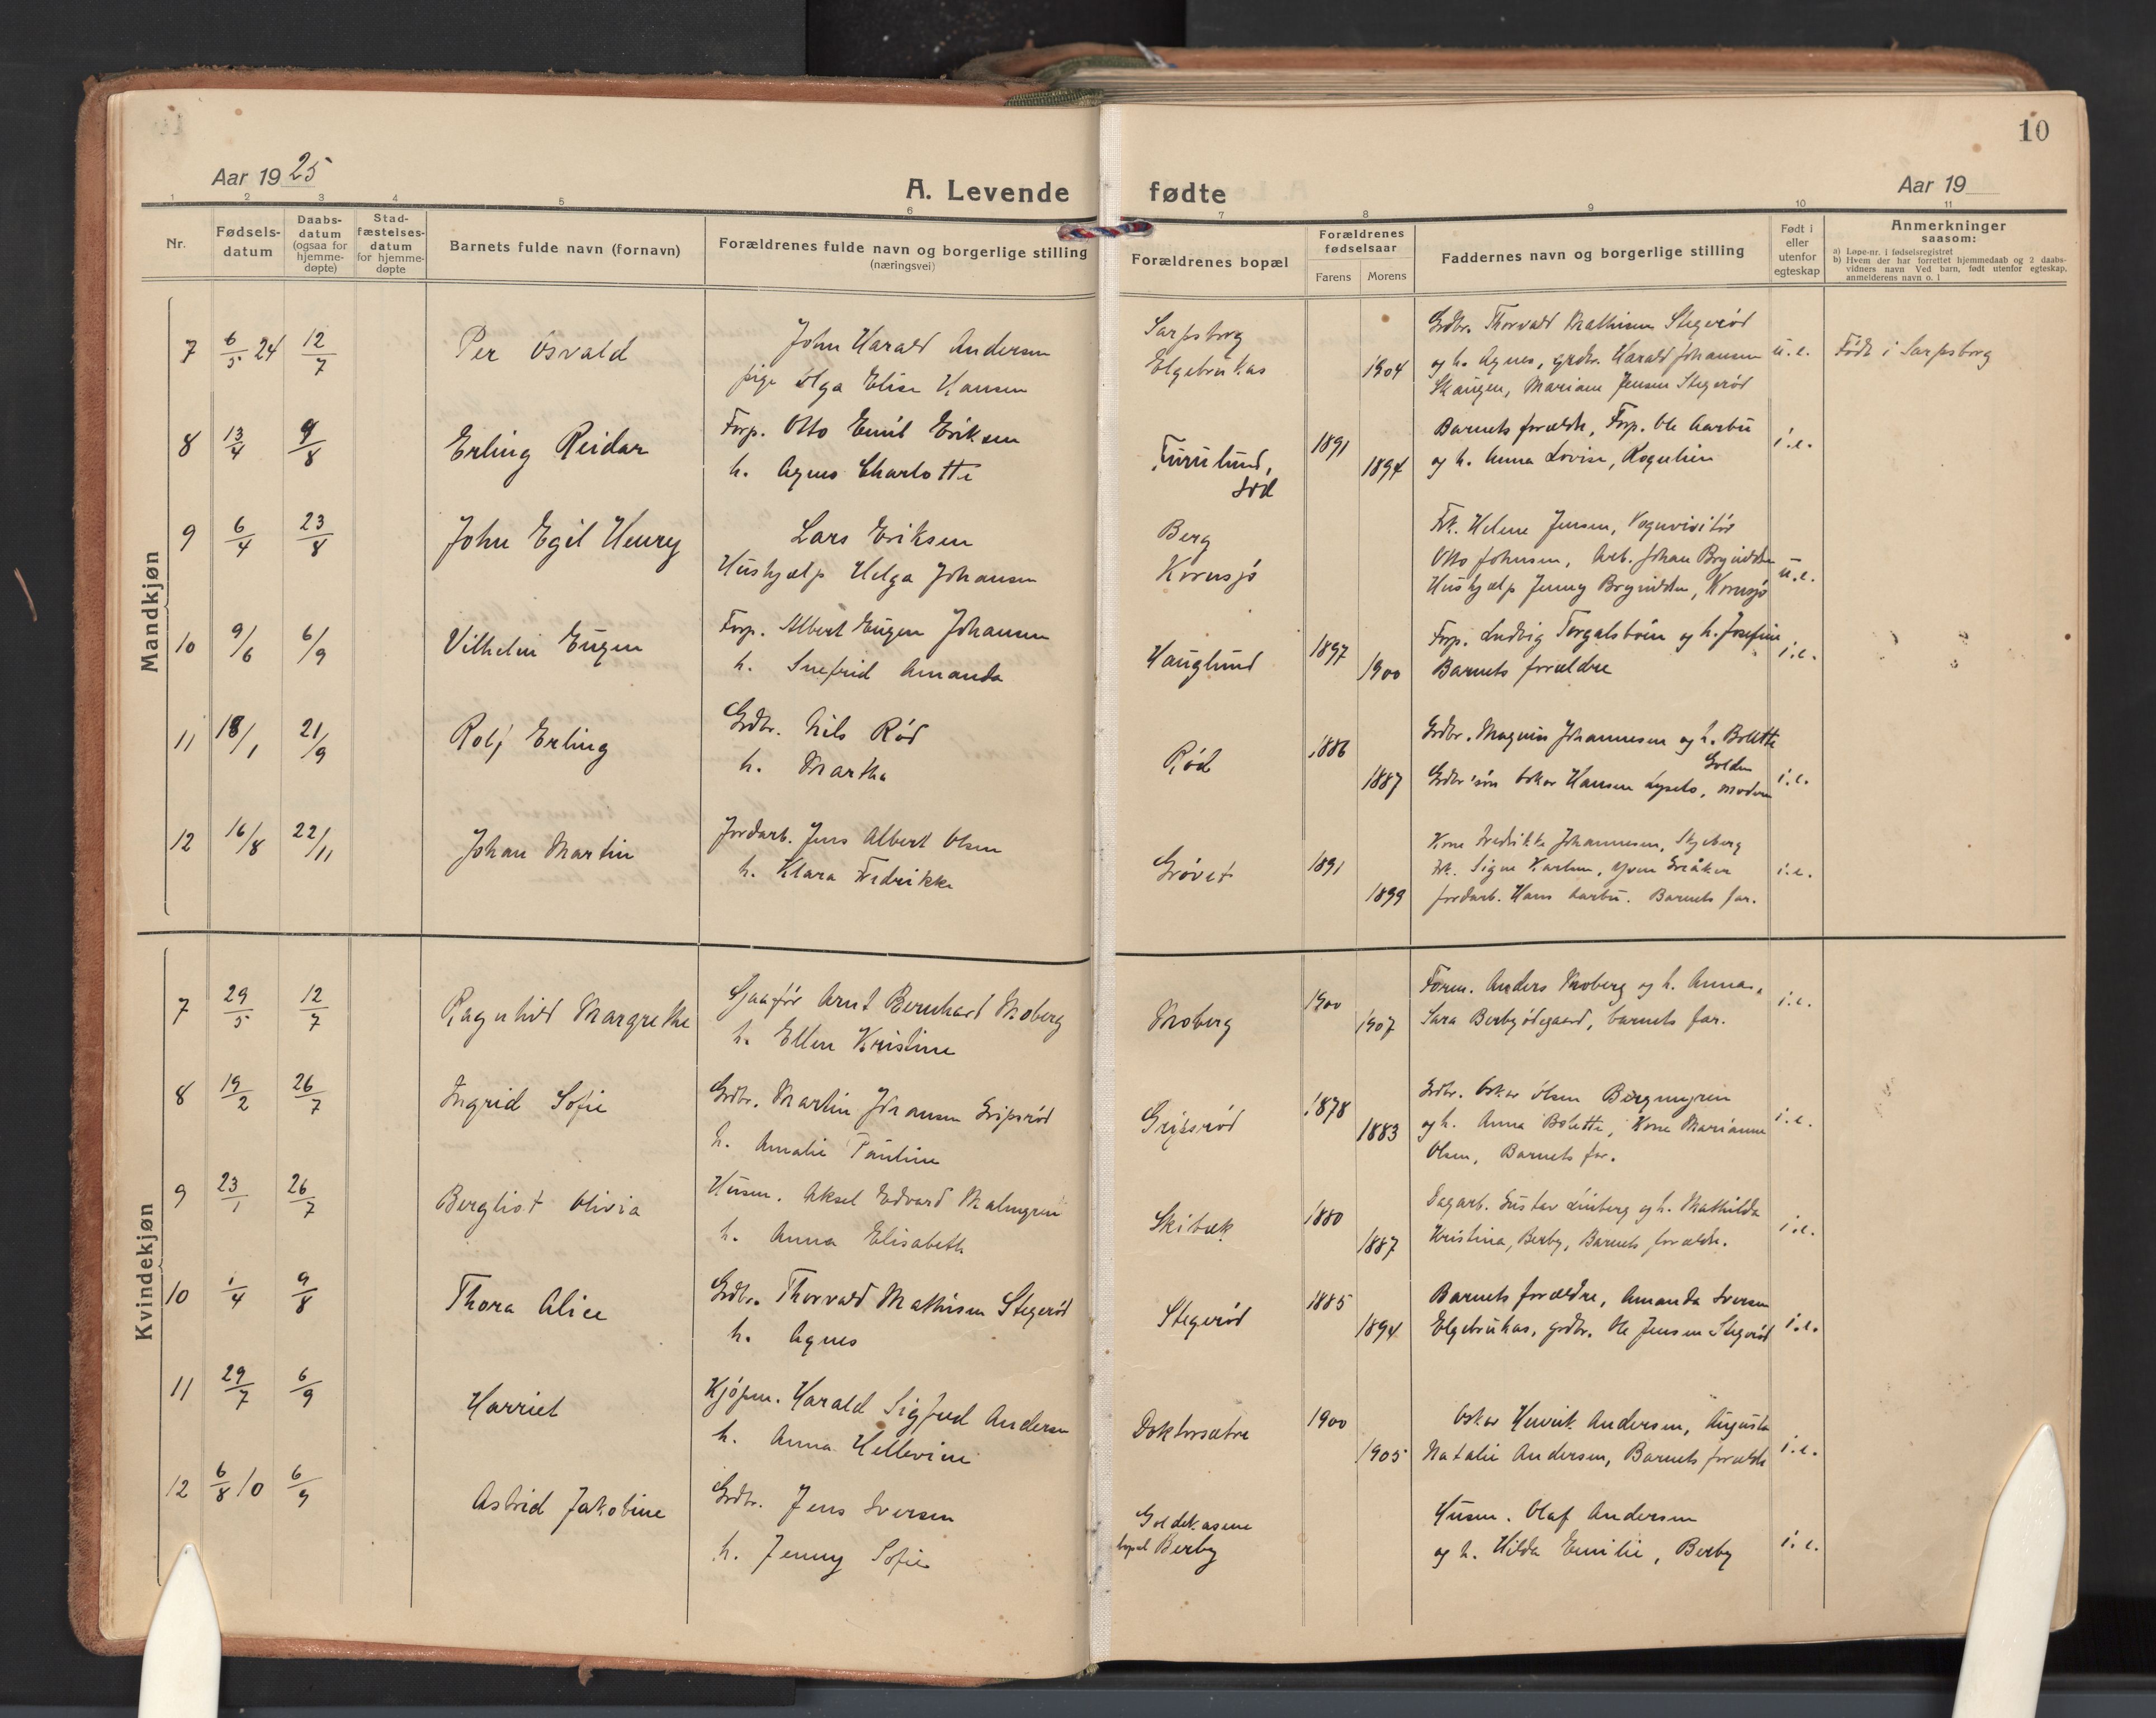 10
Aar 1925
A. Levende fødte
Aar 19
1 2 3 4 5 6 7 8 9 10 11
Nr.
Fødsels-
datum
Daabs-
datum
(ogsaa for
hjemme-
døpte)
Stad-
fæstelses-
datum
for hjemme-
døpte
Barnets fulde navn (fornavn)
Forældrenes fulde navn og borgerlige stilling
(næringsvei)
Forældrenes bopæl
Forældrenes
fødselsaar
Farens
Morens
Faddernes navn og borgerlige stilling
Født i
eller
utenfor
egteskap
Anmerkninger
saasom:
a) Løpe-nr. i fødselsregistret
b) Hvem der har forrettet hjemmedaab og 2 daabs-
vidners navn Ved barn, født utenfor egteskap,
anmelderens navn o. l
Mandkjøn
7 6/5 24 12/7 Per Osvald
John Harald Andersen
pige Olga Elise Hansen
Sarpsborg
Elgebrukas
1904
Grdbr. Thorvald Mathisen Stegerød
og h. Agnes, grdbr. Harald Johansen
Skaugen, Mariane Jensen Stegerød
u.e.
Født i Sarpsborg
8 13/4 9/8 Erling Reidar
Forp. Otto Emil Eriksen
h. Agnes Charlotte
Furulund,
1891
1894
Barnets forældre, Forp. Ole Aarbu
og h. Anna Lovise,
i.e.
9 6/4 23/8 John Egil Henry
Lars Eriksen
Hushjælp Helga Johansen
Berg
Kornsjø
Frk. Helene Jensen, Vognvisitør
Otto Johnsen, Arb. Johan
Hushjælp Jenny , Kornsjø
u.e.
10 9/6 6/9 Vilhelm Eugen
Forp. Albert Eugen Johansen
h. Snefrid Amanda
Hauglund
1897
1900
Forp. Ludvig Torgalsbøen og h. Josefine
Barnets forældre
i.e.
11 18/1 21/9 Rolf Erling
Grdbr. Nils Rød
h. Martha
Rød
1886
1887
Grdbr. Magnus Johannesen og h. Bolette
Golden
Grdbr'søn Oskar Hansen Lyseto, moderen
i.e.
12 16/8 22/11 Johan Martin
Jordarb. Jens Albert Olsen
h. Klara Fredrikke
Grøvet
1891
1899
Kone Fredrikke Johannesen, Skjeberg
Frk. Signe Karlsen, Greåker
Jordarb. Hans Aarbu. Barnets far.
i.e.
Kvindekjøn
7 29/5 12/7 Ragnhild Margrethe
Arnt Bernhard Moberg
h. Ellen Kristine
Moberg
1900
1907
Form. Anders Moberg og h. Anna,
Sara Berbyødegaard, barnets far.
i.e.
8 19/2 26/7 Ingrid Sofie
Grdbr. Martin Johansen Gripsrød
h. Amalie Pauline
Gripsrød
1878
1883
Grdbr. Oskar Olsen Bergmyren
og h. Anna Bolette, Kone Marianne
Olsen, Barnets far.
i.e.
9 23/1 26/7 Bergliot Olivia
Husm. Aksel Edvard Malmgren
h. Anna Elisabeth
Skibæk
1880
1887
Dagarb. Gustav Linberg og h. Mathilda
Kristina, Berby, Barnets forældre.
i.e.
10 1/4 9/8 Thora Alice
Grdbr. Thorvald Mathisen Stegerød
h. Agnes
Stegerød
1885
1894
Barnets forældre, Amanda Iversen
Elgebrukas, grdbr. Ole Jensen Stegerød
i.e.
11 29/7 6/9 Harriet
Kjøpm. Harald Sigfred Andersen
h. Anna Hellevine
Doktorsætre
1900
1905
Oskar Henrik Andersen, Augusta
Natalie Andersen, Barnets forældre
i.e.
12 6/8 10 6/9 Astrid Jakobine
Grdbr. Jens Iversen
h. Jenny Sofie
Goldekasene
bopæl Berby
Husm. Olaf Andersen
og h. Hilda Emilie, Berby
i.e.